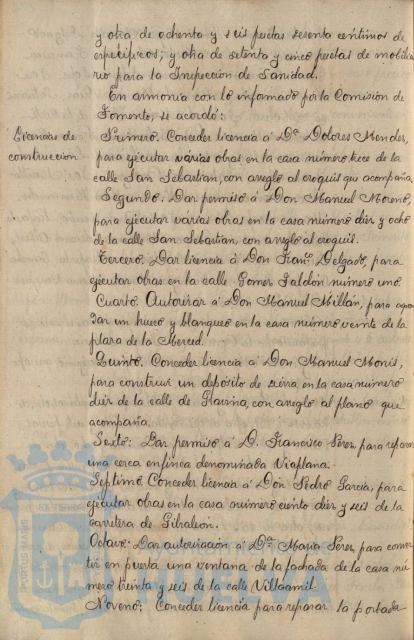 y otra de ochenta y seis pesetas sesenta centimos de
específicos; y otra de setenta y cinco pesetas de mobilia
rio para la Inspección de Sanidad.
En armonia con lo informado por la Comision de
Fomento, se acordó:
Licencias de
construccion
Primero. Conceder licencia á Dª Dolores Mendez,
para ejecutar várias obras en la casa número trece de la
calle San Sebastian, con arreglo al croquis que acompaña.
Segundo. Dar permiso á Don Manuel Moreno,
para ejecutar varias obras en la casa número diez y ocho
de la calle San Sebastian, con arreglo al croquis.
Tercero. Dar licencia á Don Franco Delgado, para
ejecutar obras en la calle Gomez Jaldón número uno.
Cuarto. Autorizar á Don Manuel Millán, para
un hueco y blanqueo en la casa número veinte de la
plaza de la Merced.
Quinto. Conceder licencia á Don Manuel Monis,
para construir un depósito de en la casa número
diez de la calle de con arreglo al plano que
acompaña.
Sexto: Dar permiso á D. Francisco Perez, para reparar
una cerca en finca denominada Viaplana.
Septimo. Conceder licencia á Don Pedro García, para
ejecutar obras en la casa número ciento diez y seis de la
carretera de Gibraleon.
Octavo: Dar autorización á Dª Maria Perez, para conver
tir en puerta una ventana de la fachada de la casa nú
mero treinta y seis de la calle Villaamil
Noveno: Conceder licencia para reparar la portada
PORTUS MARIS